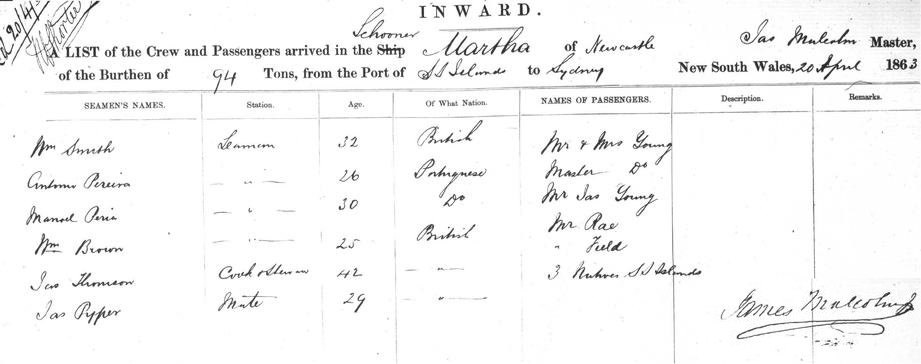 INWARD.
Schooner
A LIST of the Crew and Passengers arrived in the Ship Martha of Newcastle Jas Malcolm Master,
of the Burthen of 94 Tons, from the Port of S S Islands to Sydney New South Wales, 20 April 1863
SEAMEN'S NAMES. Station. Age. Of What Nation. NAMES OF PASSENGERS. Description. Remarks.
Wm Smith Seaman 32 British Mr & Mrs Young
Antonio Pereira — " — 26 Portuguese Master Do
Manoel Peria — " — 30 Do Mr Jas Young
Wm Brown — " — 25 British Mr Rae
" Field
Jas Thomson Cook & Steward 42 — " — 3 Natives S S Islands
Jas Pyper Mate 29 — " —
James Malcolm